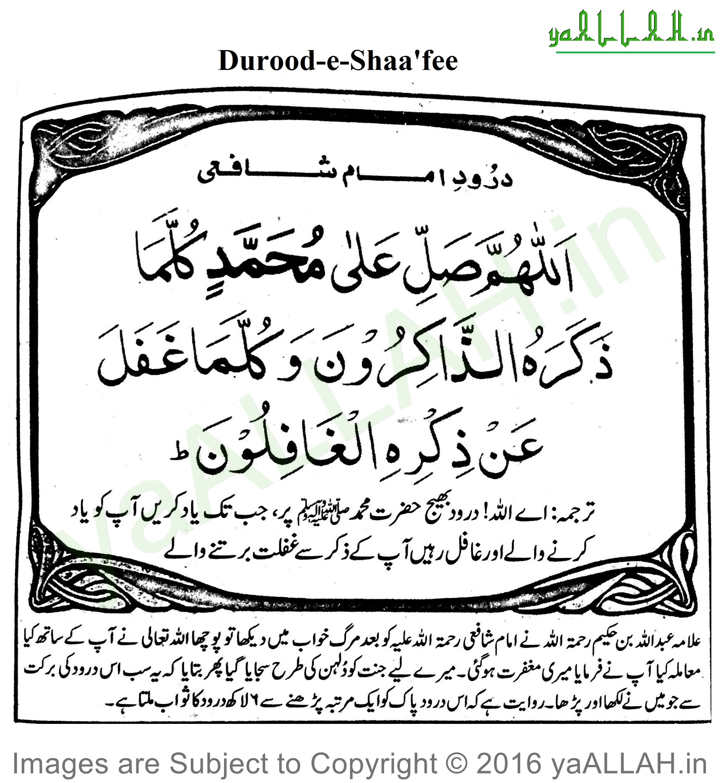 yaALLAH.in
Durood-e-Shaa'fee
درُودِ امام شافعی
اَللّٰهُمَّ صَلِّ عَلٰی مُحَمَّدٍ كُلَّمَا
ذَكَرَهُ الذَّاكِرُوْنَ وَكُلَّمَا غَفَلَ
عَنْ ذِكْرِهِ الْغَافِلُوْنَ ط
ترجمہ: اے اللہ! درود بھیج حضرت محمد ﷺ پر، جب تک یاد کریں آپ کو یاد
کرنے والے اور غافل رہیں آپ کے ذکر سے غفلت برتنے والے
علامہ عبداللہ بن حکیم رحمتہ اللہ نے امام شافعی رحمتہ اللہ علیہ کو بعد مرگ خواب میں دیکھا تو پوچھا اللہ تعالی نے آپ کے ساتھ کیا
معاملہ کیا آپ نے فرمایا میری مغفرت ہوگئی۔ میرے لیے جنت کو دُلہن کی طرح سجایا گیا پھر بتایا کہ یہ سب اس درود کی برکت
سے جو میں نے لکھا اور پڑھا۔ روایت ہے کہ اس درود پاک کو ایک مرتبہ پڑھنے سے ۶ لاکھ درود کا ثواب ملتا ہے۔
yaALLAH.in
Images are Subject to Copyright © 2016 yaALLAH.in